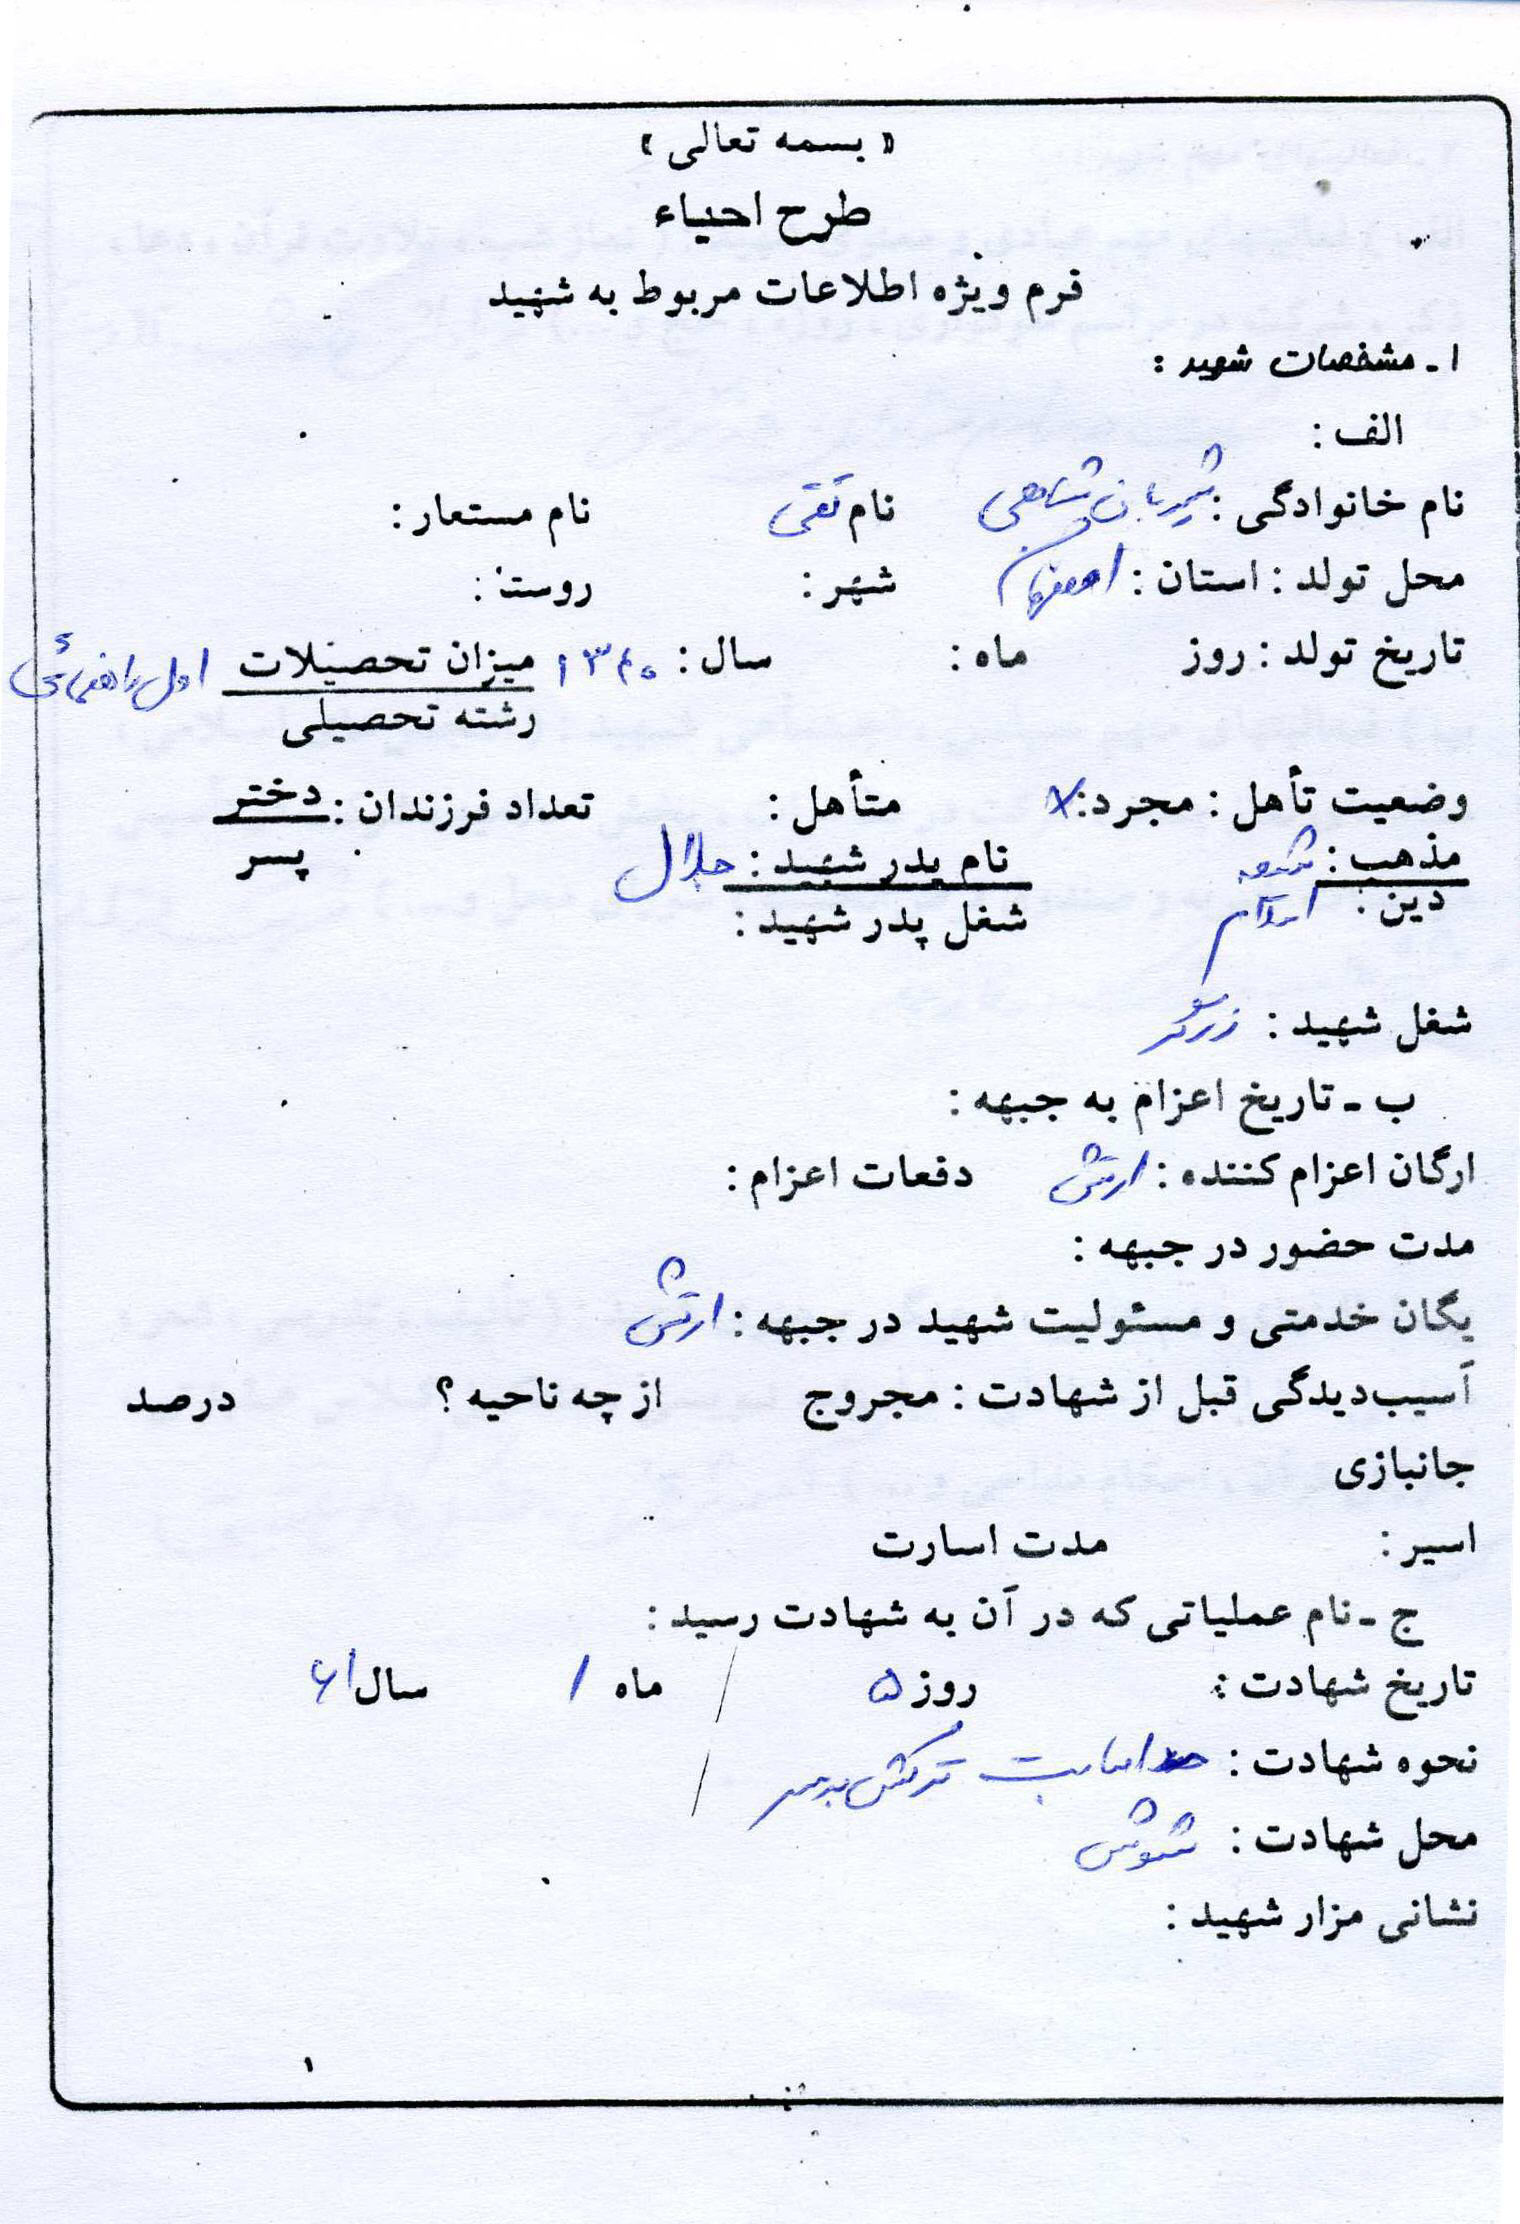 « بسمه تعالی »
طرح احیاء
فرم ویژه اطلاعات مربوط به شهید
۱ ـ مشخصات شهید :
الف :
نام خانوادگی : شیربان شاهی نام تقی نام مستعار :
محل تولد : استان : اصفهان شهر : روستا :
تاریخ تولد : روز ماه : سال : ۱۳۴۰ میزان تحصیلات اول راهنمائی
رشته تحصیلی
وضعیت تأهل : مجرد : x متأهل : تعداد فرزندان : دختر
پسر
مذهب : شیعه نام پدر شهید : جلال
دین : اسلام شغل پدر شهید :
شغل شهید : زرگر
ب ـ تاریخ اعزام به جبهه :
ارگان اعزام کننده : ارتش دفعات اعزام :
مدت حضور در جبهه :
یگان خدمتی و مسئولیت شهید در جبهه : ارتش
آسیب‌دیدگی قبل از شهادت : مجروج از چه ناحیه ؟ درصد
جانبازی
اسیر : مدت اسارت
ج ـ نام عملیاتی که در آن به شهادت رسید :
تاریخ شهادت : روز ۵ ماه ۱ سال ۶۱
نحوه شهادت : اصابت ترکش بسر
محل شهادت : شوش
نشانی مزار شهید :
۱